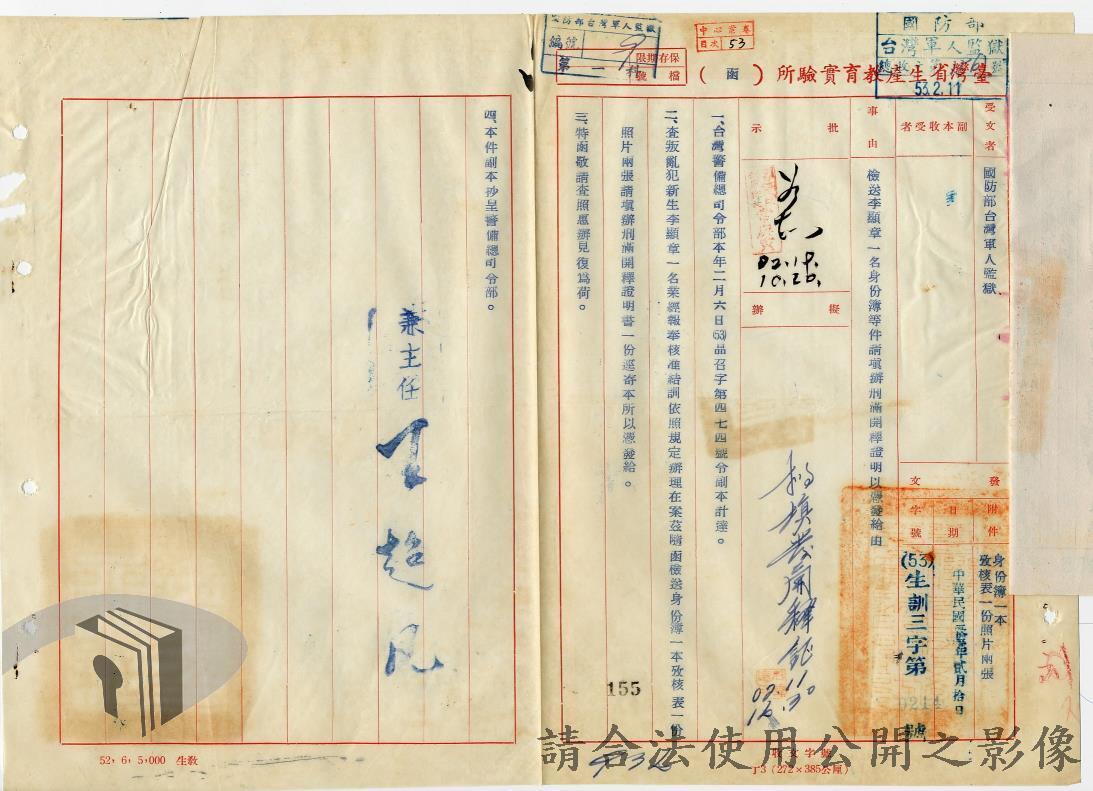 國防部台灣軍人監獄
編號
第一科
中心當卷
目次 53
保存期限
檔號
國防部
台灣軍人監獄
53.2.11
臺灣省生產教育實驗所(函)
受文者
國防部台灣軍人監獄
副本收受者
事由
檢送李顯章一名身份簿等件請填辦刑滿開釋證明以憑發給由
發文
附件
身份簿一本
攷核表一份照片兩張
日期
中華民國
年貳月拾日
字號
(53)生訓三字第
號
批示
02.19.
10.20.
擬辦
一、台灣警備總司令部本年二月六日(53)品召字第四七四號令副本計達。
二、查叛亂犯新生李顯章一名業經報奉核准結訓依照規定辦理在案茲隨函檢送身份簿一本攷核表一份
照片兩張請填辦刑滿開釋證明書一份逕寄本所以憑發給。
三、特函敬請查照惠辦見復為荷。
四、本件副本抄呈警備總司令部。
兼主任 王超凡
155
收文字號
丁3(272×385公厘)
52，6，5,000 生教
請合法使用公開之影像